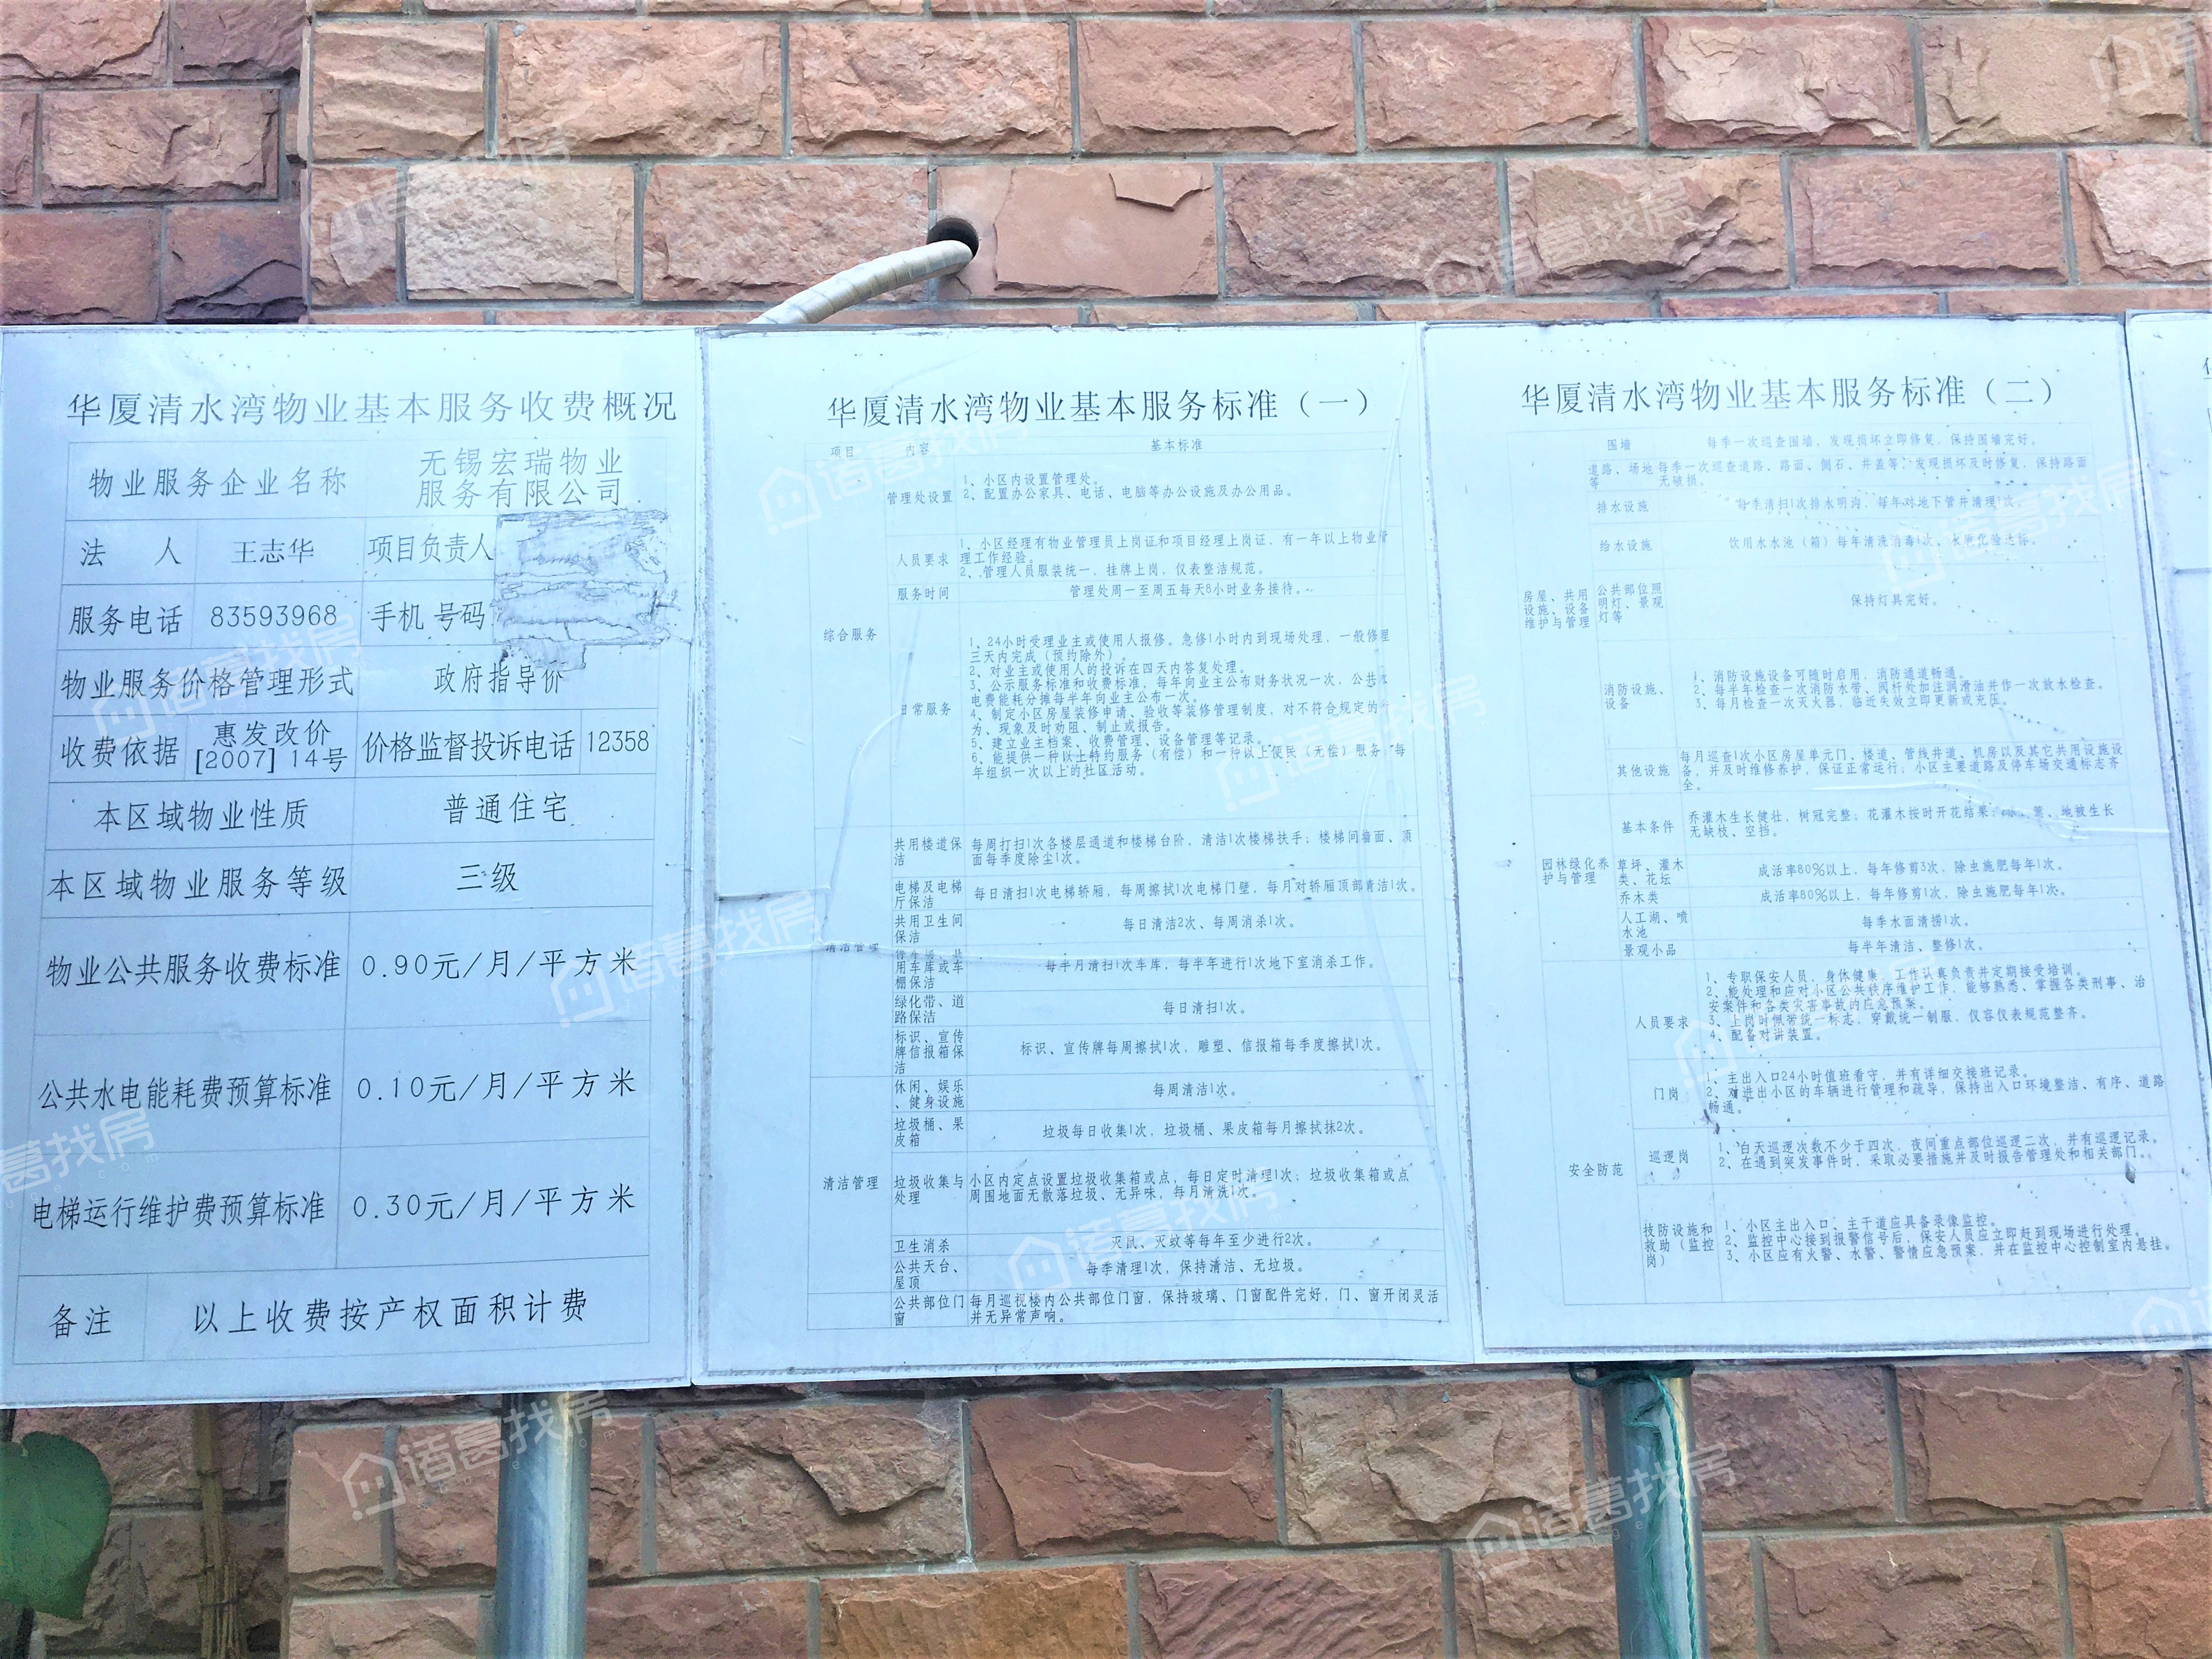 华厦清水湾物业基本服务收费概况
物业服务企业名称 无锡宏瑞物业
服务有限公司
法 人 王志华 项目负责人
服务电话 83593968 手机号码
物业服务价格管理形式 政府指导价
收费依据 惠发改价
[2007] 14号 价格监督投诉电话 12358
本区域物业性质 普通住宅
本区域物业服务等级 三级
物业公共服务收费标准 0.90元/月/平方米
公共水电能耗费预算标准 0.10元/月/平方米
电梯运行维护费预算标准 0.30元/月/平方米
备注 以上收费按产权面积计费
华厦清水湾物业基本服务标准（一）
项目 内容 基本标准
综合服务
管理处设置
1、小区内设置管理处。
2、配置办公家具、电话、电脑等办公设施及办公用品。
人员要求
1、小区经理有物业管理员上岗证和项目经理上岗证，有一年以上物业管
理工作经验。
2、管理人员服装统一，挂牌上岗，仪表整洁规范。
服务时间 管理处周一至周五每天8小时业务接待。
日常服务
1、24小时受理业主或使用人报修。急修1小时内到现场处理，一般修理
三天内完成（预约除外）。
2、对业主或使用人的投诉在四天内答复处理。
3、公示服务标准和收费标准，每年向业主公布财务状况一次，公共
电费能耗分摊每半年向业主公布一次。
4、制定小区房屋装修申请、验收等装修管理制度，对不符合规定的
为、现象及时劝阻、制止或报告。
5、建立业主档案、收费管理、设备管理等记录。
6、能提供一种以上特约服务（有偿）和一种以上便民（无偿）服务 每
年组织一次以上的社区活动。
清洁管理
共用楼道保
洁
每周打扫1次各楼层通道和楼梯台阶，清洁1次楼梯扶手；楼梯间墙面、顶
面每季度除尘1次。
电梯及电梯
厅保洁
每日清扫1次电梯轿厢，每周擦拭1次电梯门壁，每月对轿厢顶部清洁1次。
共用卫生间
保洁
每日清洁2次、每周消杀1次。
用车库或车
棚保洁
每半月清扫1次车库，每半年进行1次地下室消杀工作。
绿化带、道
路保洁
每日清扫1次。
标识、宣传
牌信报箱保
洁
标识、宣传牌每周擦拭1次，雕塑、信报箱每季度擦拭1次。
清洁管理
休闲、娱乐
、健身设施
每周清洁1次。
垃圾桶、果
皮箱
垃圾每日收集1次，垃圾桶、果皮箱每月擦拭抹2次。
垃圾收集与
处理
小区内定点设置垃圾收集箱或点，每日定时清理1次；垃圾收集箱或点
周围地面无散落垃圾、无异味，每月清洗1次。
卫生消杀 灭鼠、灭蚊等每年至少进行2次。
公共天台、
屋顶
每季清理1次，保持清洁、无垃圾。
公共部位门
窗
每月巡视楼内公共部位门窗，保持玻璃、门窗配件完好，门、窗开闭灵活
并无异常声响。
华厦清水湾物业基本服务标准（二）
房屋、共用
设施、设备
维护与管理
围墙 每季一次巡查围墙，发现损坏立即修复，保持围墙完好。
道路、场地
等
每季一次巡查道路、路面、侧石、井盖等，发现损坏及时修复，保持路面
无破损。
排水设施 每季清扫1次排水明沟，每年对地下管井清理1次。
给水设施 饮用水水池（箱）每年清洗消毒1次、水质化验达标。
公共部位照
明灯、景观
灯等
保持灯具完好。
消防设施、
设备
1、消防设施设备可随时启用，消防通道畅通。
2、每半年检查一次消防水带、阀杆处加注润滑油并作一次放水检查。
3、每月检查一次灭火器，临近失效立即更新或充压。
其他设施
每月巡查1次小区房屋单元门、楼道、管线井道、机房以及其它共用设施设
备，并及时维修养护，保证正常运行；小区主要道路及停车场交通标志齐
全。
园林绿化养
护与管理
基本条件
乔灌木生长健壮，树冠完整；花灌木按时开花结果；篱、地被生长
无缺枝、空挡。
草坪、灌木
类、花坛
成活率80%以上，每年修剪3次，除虫施肥每年1次。
乔木类 成活率80%以上，每年修剪1次，除虫施肥每年1次。
人工湖、喷
水池
每季水面清捞1次。
景观小品 每半年清洁、整修1次。
安全防范
人员要求
1、专职保安人员，身体健康，工作认真负责并定期接受培训。
2、能处理和应对小区公共秩序维护工作，能够熟悉、掌握各类刑事、治
安案件和各类灾害事故的应急预案。
3、上岗时佩带统一标志，穿戴统一制服，仪容仪表规范整齐。
4、配备对讲装置。
门岗
1、主出入口24小时值班看守，并有详细交接班记录。
2、对进出小区的车辆进行管理和疏导，保持出入口环境整洁、有序、道路
畅通。
巡逻岗
1、白天巡逻次数不少于四次，夜间重点部位巡逻二次，并有巡逻记录。
2、在遇到突发事件时，采取必要措施并及时报告管理处和相关部门。
技防设施和
救助（监控
岗）
1、小区主出入口、主干道应具备录像监控。
2、监控中心接到报警信号后，保安人员应立即赶到现场进行处理。
3、小区应有火警、水警、警情应急预案，并在监控中心控制室内悬挂。
诸葛找房